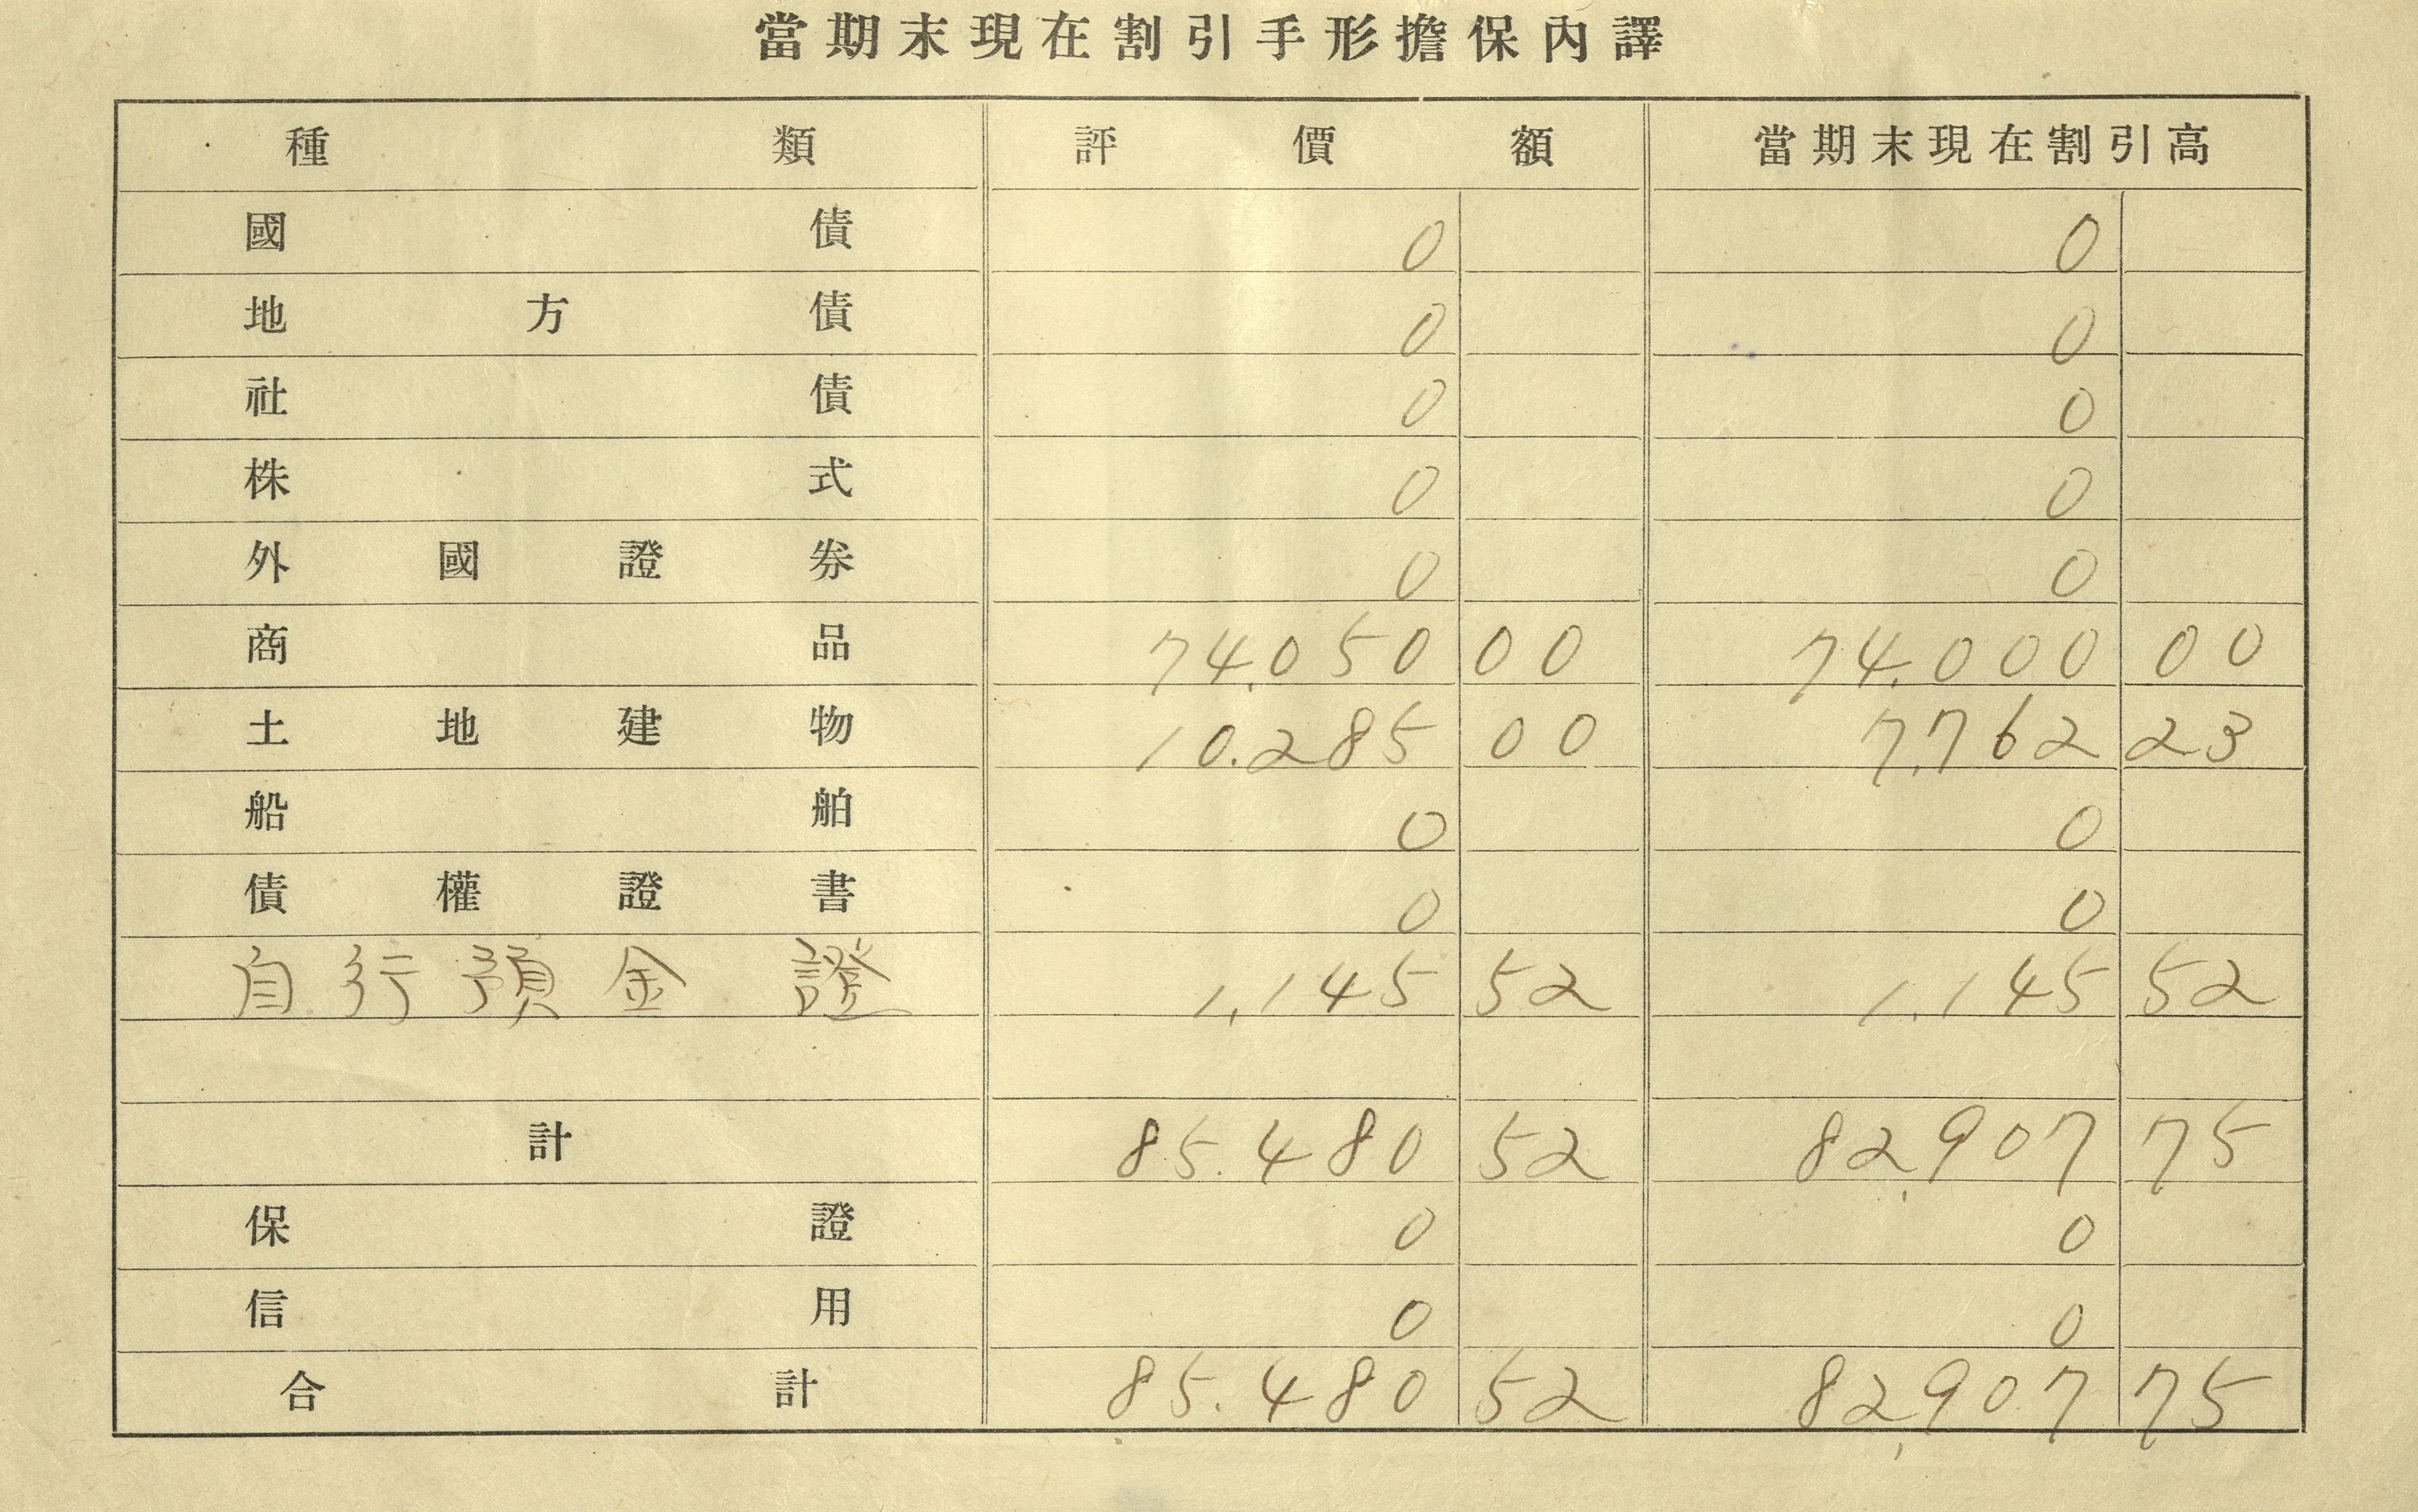 當期末現在割引手形擔保內譯
種類 評價額 當期末現在割引高
國債 0 0
地方債 0 0
社債 0 0
株式 0 0
外國證券 0 0
商品 74.050 00 74.000 00
土地建物 10.285 00 7.762 23
船舶 0 0
債權證書 0 0
自行預金證 1,145 52 1.145 52
計 85.480 52 82,907 75
保證 0 0
信用 0 0
合計 85.480 52 82,907 75